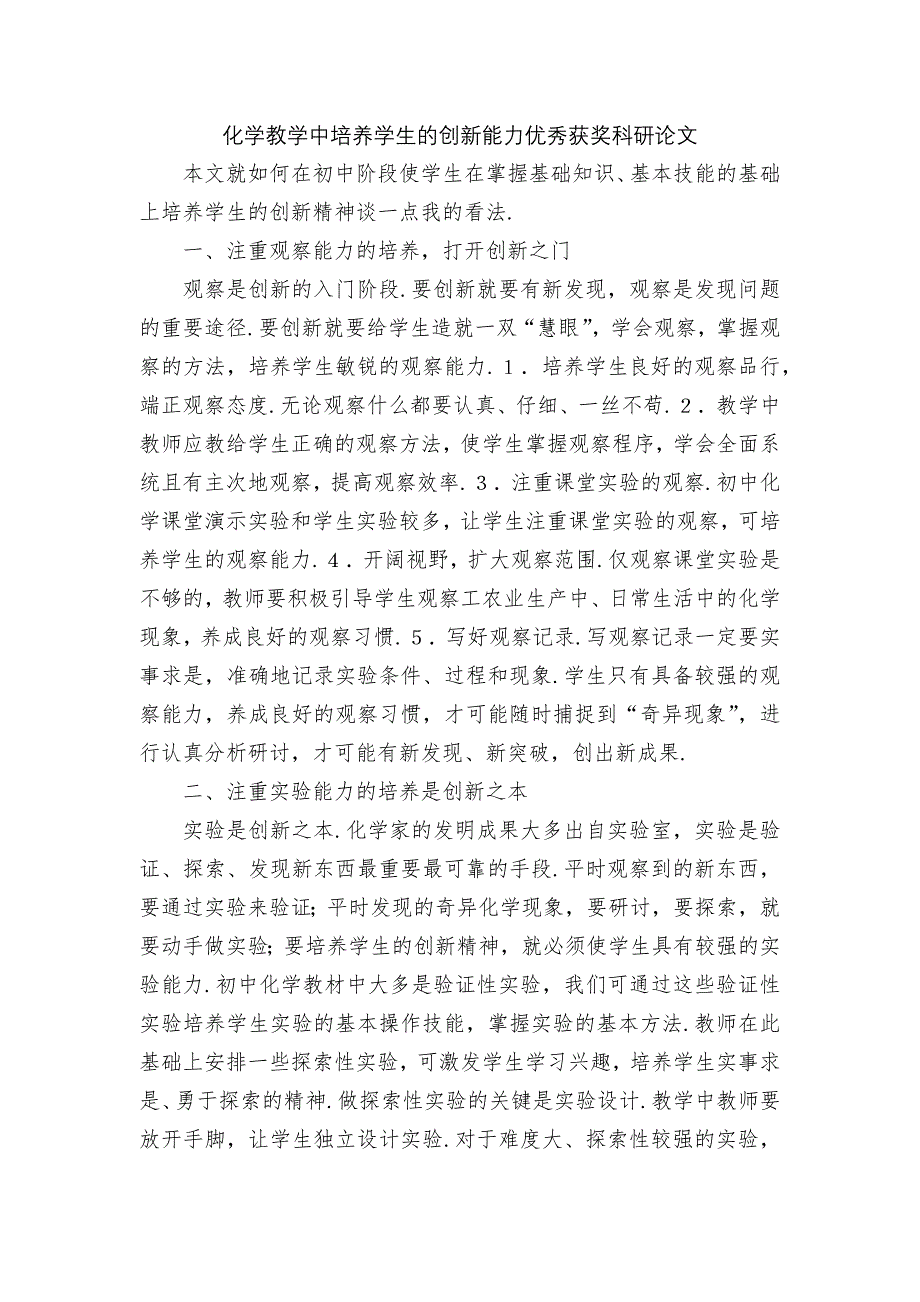 化学教学中培养学生的创新能力优秀获奖科研论文
本文就如何在初中阶段使学生在掌握基础知识、基本技能的基础
上培养学生的创新精神谈一点我的看法.
一、注重观察能力的培养，打开创新之门
观察是创新的入门阶段.要创新就要有新发现，观察是发现问题
的重要途径.要创新就要给学生造就一双“慧眼”，学会观察，掌握观
察的方法，培养学生敏锐的观察能力.１．培养学生良好的观察品行，
端正观察态度.无论观察什么都要认真、仔细、一丝不苟.２．教学中
教师应教给学生正确的观察方法，使学生掌握观察程序，学会全面系
统且有主次地观察，提高观察效率.３．注重课堂实验的观察.初中化
学课堂演示实验和学生实验较多，让学生注重课堂实验的观察，可培
养学生的观察能力.４．开阔视野，扩大观察范围.仅观察课堂实验是
不够的，教师要积极引导学生观察工农业生产中、日常生活中的化学
现象，养成良好的观察习惯.５．写好观察记录.写观察记录一定要实
事求是，准确地记录实验条件、过程和现象.学生只有具备较强的观
察能力，养成良好的观察习惯，才可能随时捕捉到“奇异现象”，进
行认真分析研讨，才可能有新发现、新突破，创出新成果.
二、注重实验能力的培养是创新之本
实验是创新之本.化学家的发明成果大多出自实验室，实验是验
证、探索、发现新东西最重要最可靠的手段.平时观察到的新东西，
要通过实验来验证；平时发现的奇异化学现象，要研讨，要探索，就
要动手做实验；要培养学生的创新精神，就必须使学生具有较强的实
验能力.初中化学教材中大多是验证性实验，我们可通过这些验证性
实验培养学生实验的基本操作技能，掌握实验的基本方法.教师在此
基础上安排一些探索性实验，可激发学生学习兴趣，培养学生实事求
是、勇于探索的精神.做探索性实验的关键是实验设计.教学中教师要
放开手脚，让学生独立设计实验.对于难度大、探索性较强的实验，